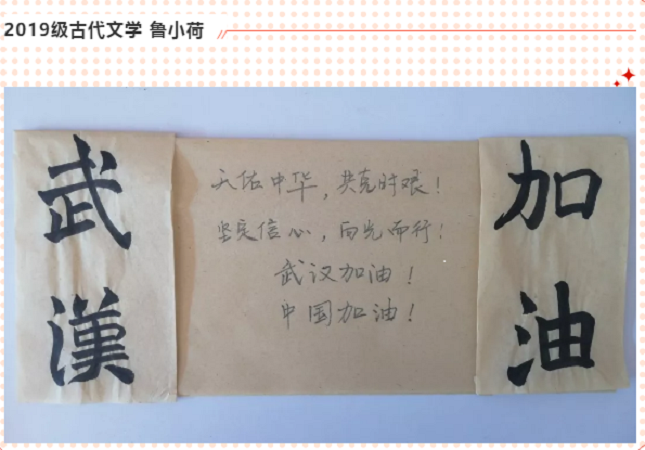 2019级古代文学 鲁小荷
武漢
天佑中华，共克时艰！
坚定信心，向光而行！
武汉加油！
中国加油！
加油